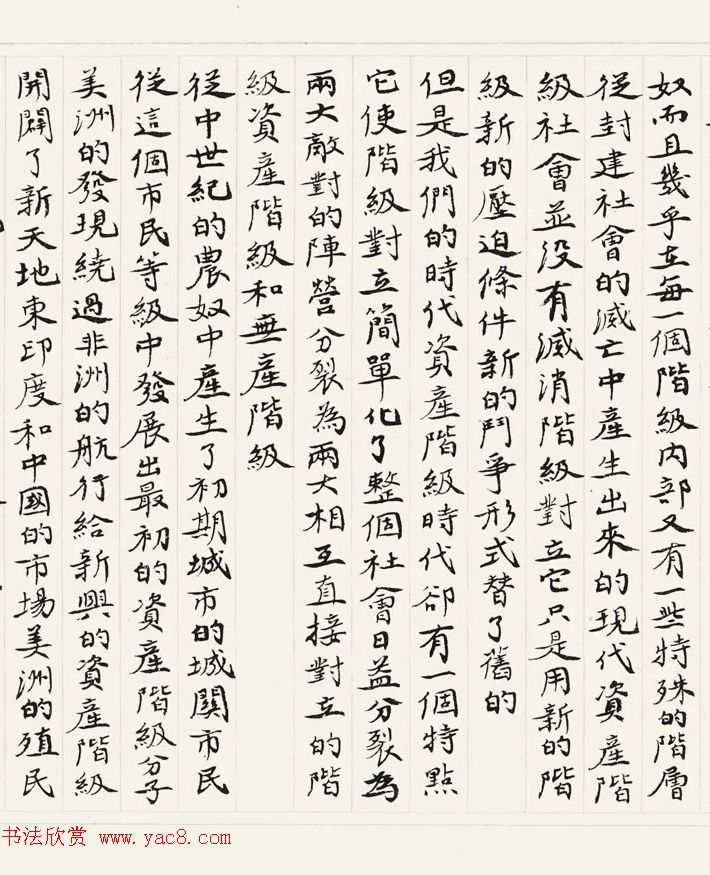 奴而且幾乎在每一個階級內部又有一些特殊的階層
從封建社會的滅亡中產生出來的現代資產階
級社會並没有滅消階級對立它只是用新的階
級新的壓迫條件新的鬥爭形式替了舊的
但是我們的時代資產階級時代卻有一個特點
它使階級對立簡單化了整個社會日益分裂為
兩大敵對的陣營分裂為兩大相互直接對立的階
級資產階級和無產階級
從中世紀的農奴中產生了初期城市的城關市民
從這個市民等級中發展出最初的資產階級分子
美洲的發現繞過非洲的航行給新興的資產階級
開闢了新天地東印度和中國的市場美洲的殖民
书法欣赏 www.yac8.com